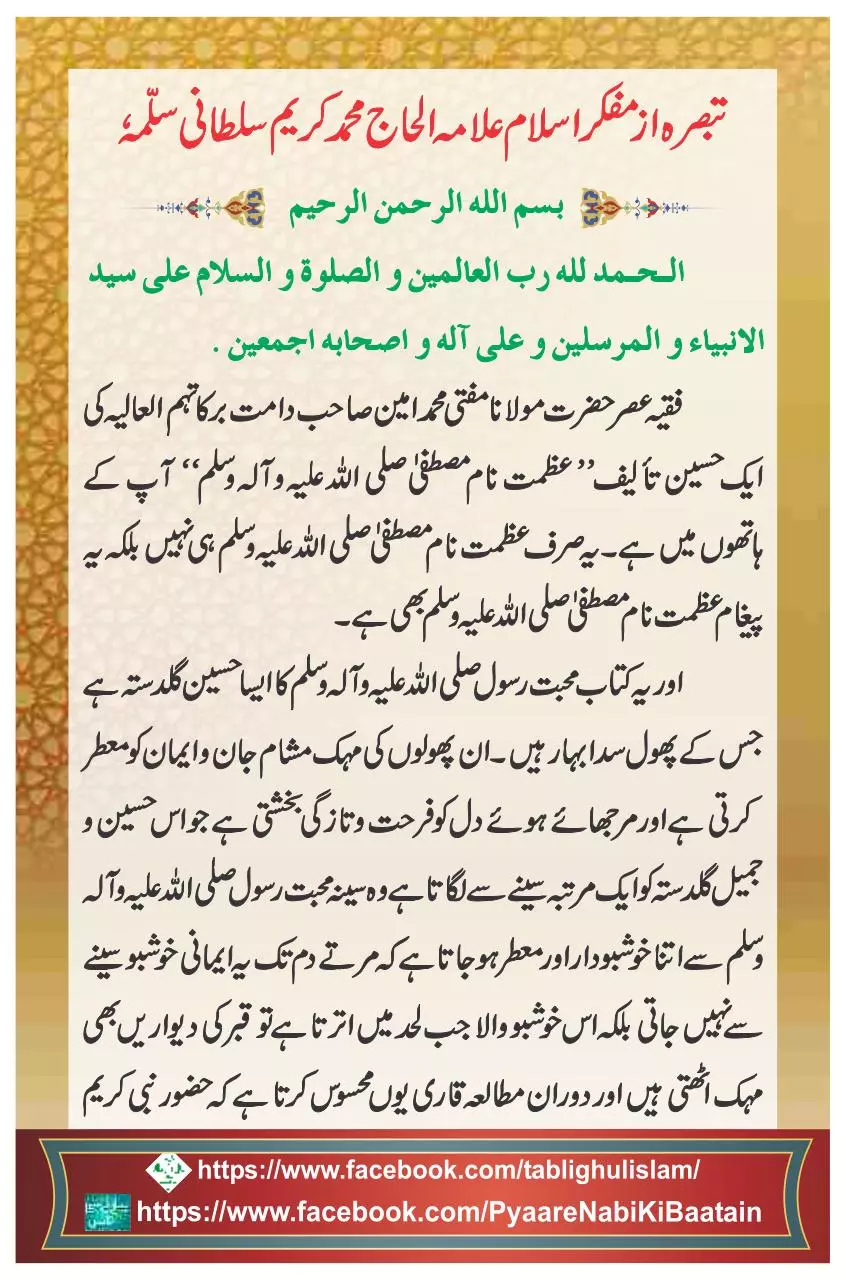 تبصرہ از مفکر اسلام علامہ الحاج محمد کریم سلطانی سلّمہٗ
بسم الله الرحمن الرحیم
الـحـمد لله رب العالمین و الصلوة و السلام علی سید
الانبیاء و المرسلین و علی آله و اصحابه اجمعین .
فقیہ عصر حضرت مولانا مفتی محمد امین صاحب دامت برکاتہم العالیہ کی
ایک حسین تألیف ’’عظمت نام مصطفیٰ صلی اللہ علیہ وآلہ وسلم‘‘ آپ کے
ہاتھوں میں ہے۔ یہ صرف عظمت نام مصطفیٰ صلی اللہ علیہ وسلم ہی نہیں بلکہ یہ
پیغام عظمت نام مصطفیٰ صلی اللہ علیہ وسلم بھی ہے۔
اور یہ کتاب محبت رسول صلی اللہ علیہ وآلہ وسلم کا ایسا حسین گلدستہ ہے
جس کے پھول سدا بہار ہیں۔ ان پھولوں کی مہک مشام جان و ایمان کو معطر
کرتی ہے اور مرجھائے ہوئے دل کو فرحت و تازگی بخشتی ہے جو اس حسین و
جمیل گلدستہ کو ایک مرتبہ سینے سے لگاتا ہے وہ سینہ محبت رسول صلی اللہ علیہ وآلہ
وسلم سے اتنا خوشبودار اور معطر ہو جاتا ہے کہ مرتے دم تک یہ ایمانی خوشبو سینے
سے نہیں جاتی بلکہ اس خوشبو والا جب لحد میں اترتا ہے تو قبر کی دیواریں بھی
مہک اٹھتی ہیں اور دوران مطالعہ قاری یوں محسوس کرتا ہے کہ حضور نبی کریم
https://www.facebook.com/tablighulislam/
https://www.facebook.com/PyaareNabiKiBaatain